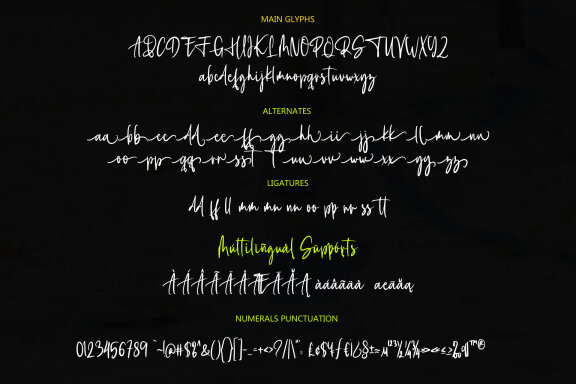 MAIN GLYPHS
ABCDEFGHIJKLMNOPQRSTUVWXYZ
abcdefghijklmnopqrstuvwxyz
ALTERNATES
aa bb cc dd ee ff gg hh ii jj kk ll mm nn
oo pp qq rr ss t T uu vv ww xx yy zz
LIGATURES
dd ff ll mm mn nn oo pp rr ss tt
Multilingual Supports
NUMERALS PUNCTUATION
0123456789